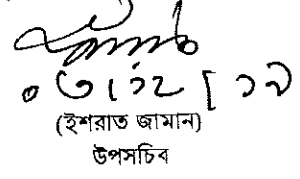 ০৩।১২।১৯
(ইশরাত জামান)
উপসচিব